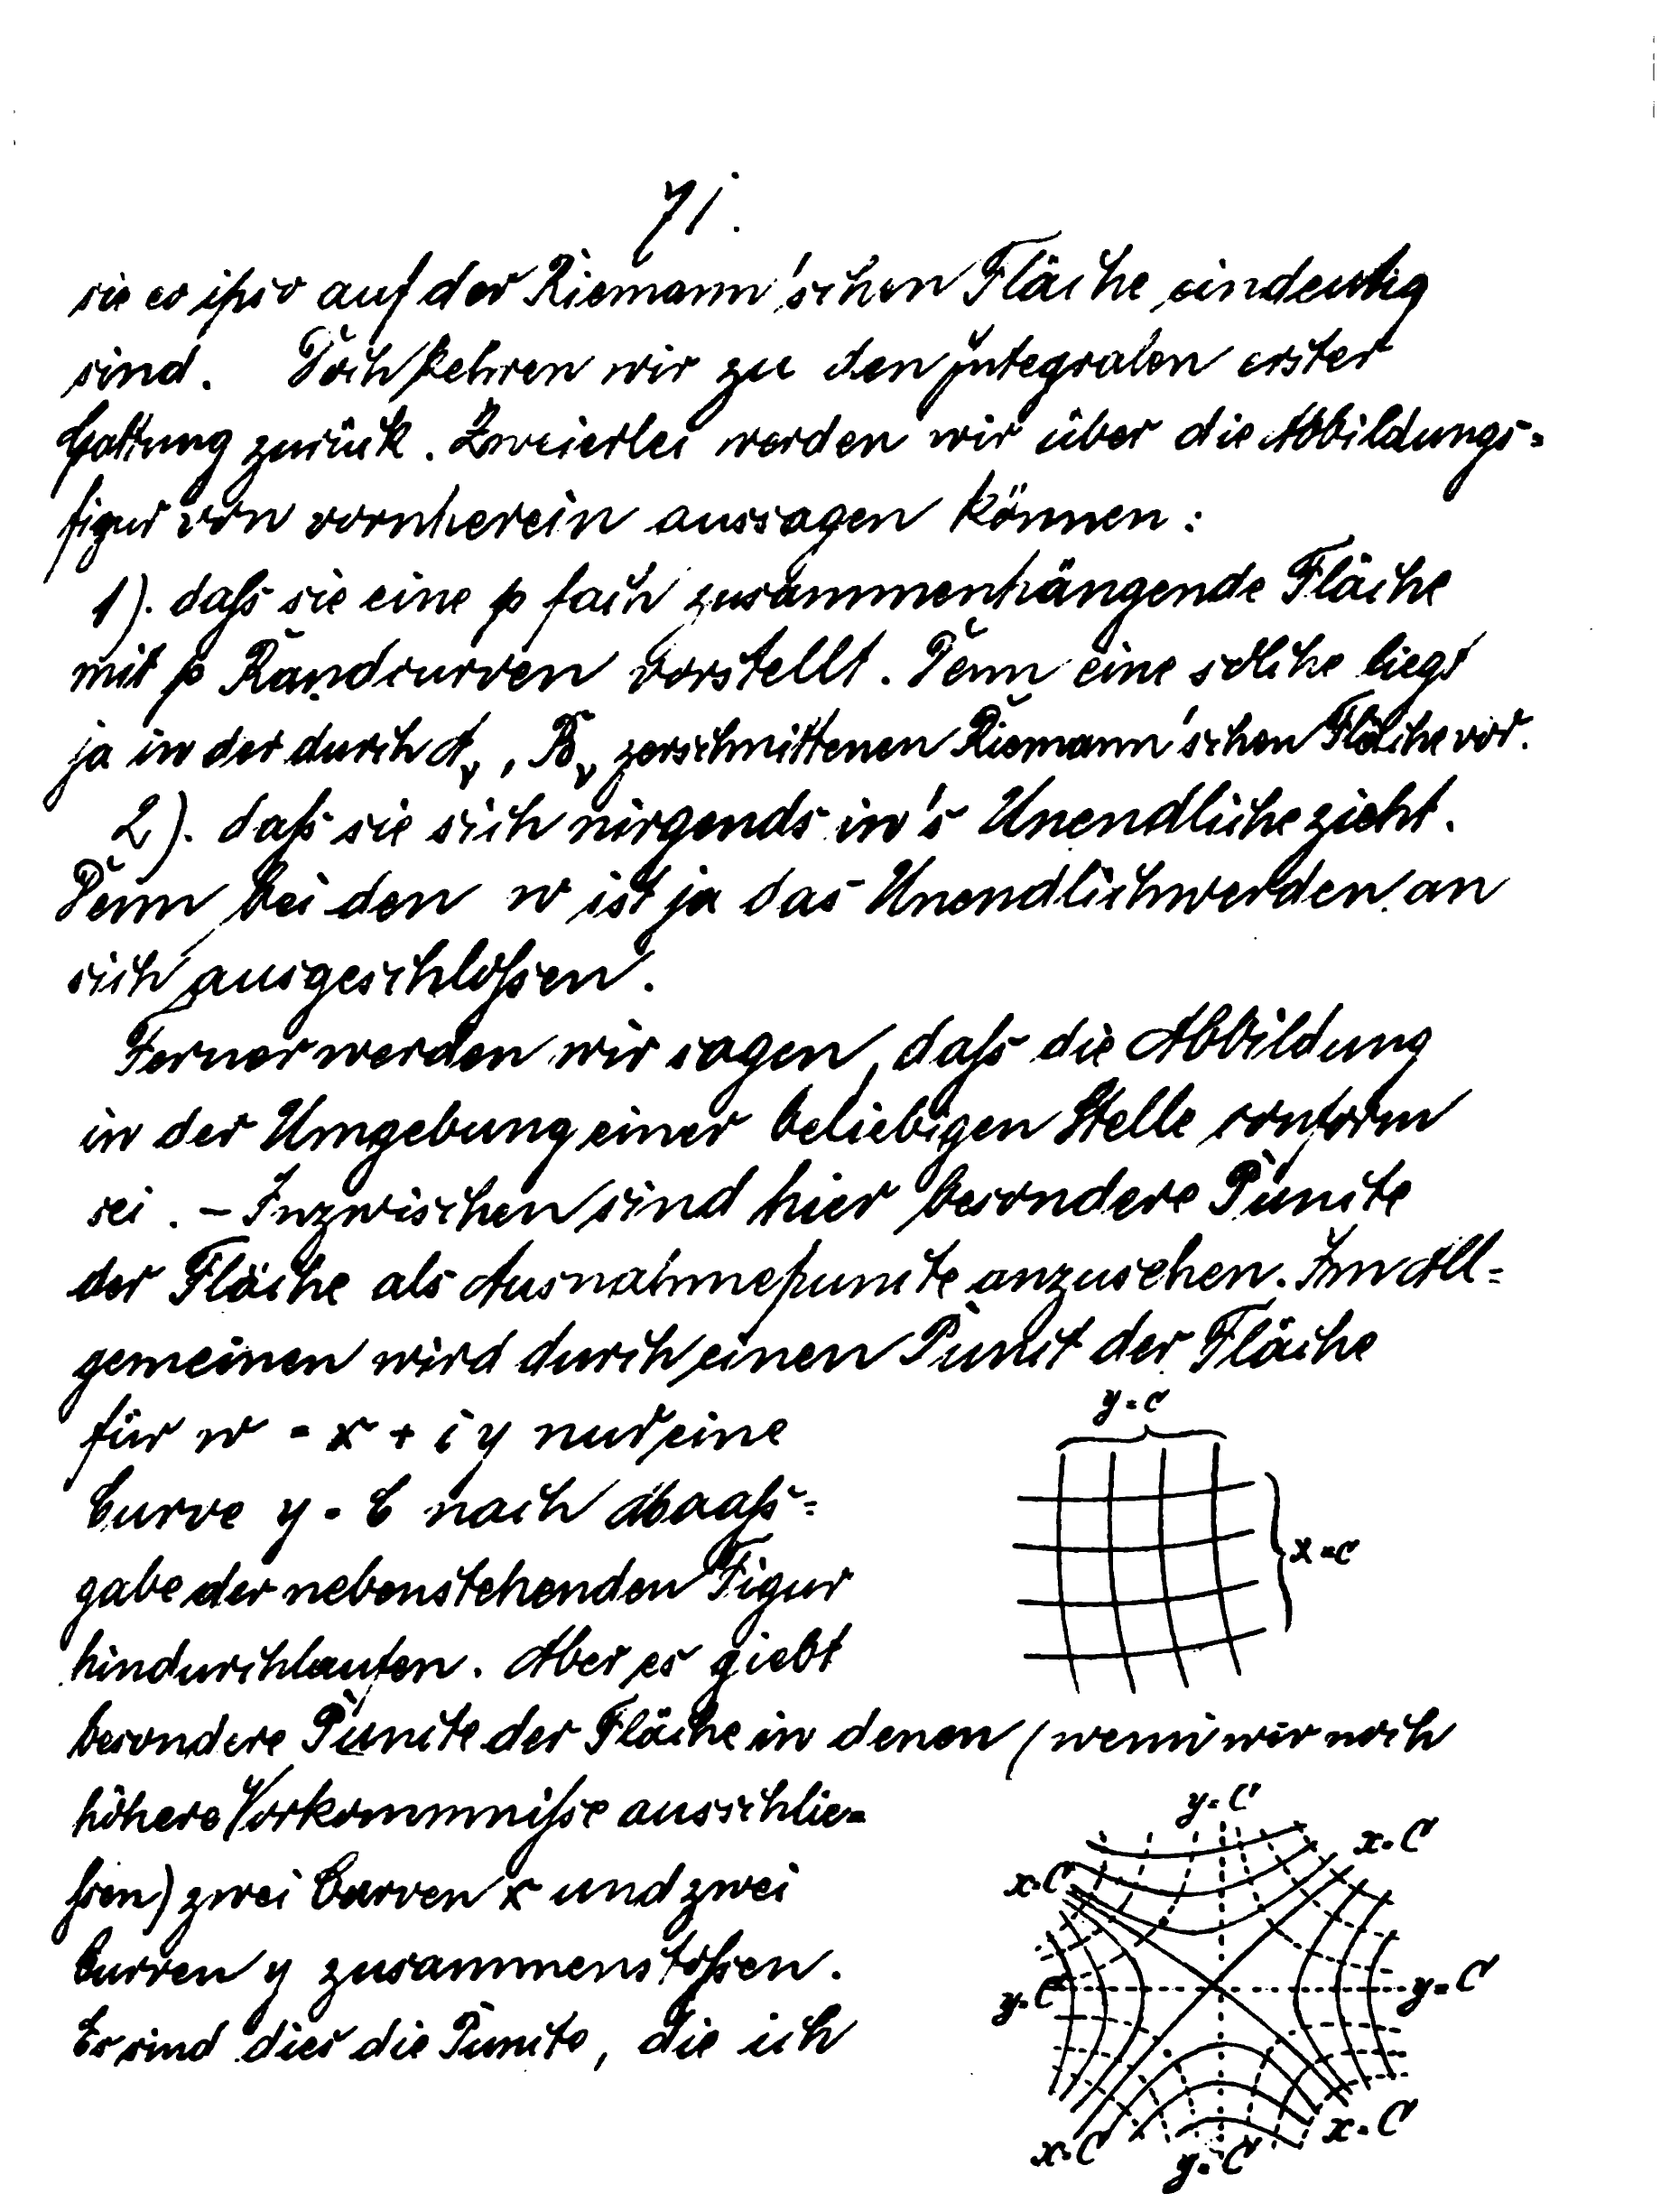 71.
sie es ipso auf der Riemann'schen Fläche eindeutig
sind. Doch kehren wir zu den Integralen erster
Gattung zurück. Zweierlei werden wir über die Abbildungs=
figur von vornherein aussagen können:
1). daß sie eine p fach zusammenhängende Fläche
mit p Randcurven vorstellt. Denn eine solche liegt
ja in der durch A_ν, B_ν zerschnittenen Riemann'schen Fläche vor.
2). daß sie sich nirgends in's Unendliche zieht.
Denn bei den w ist ja das Unendlichwerden an
sich ausgeschloßen.
Ferner werden wir sagen, daß die Abbildung
in der Umgebung einer beliebigen Stelle conform
sei. – Inzwischen sind hier besondere Puncte
der Fläche als Ausnahmepuncte anzusehen. Im All=
gemeinen wird durch einen Punct der Fläche
für w = x + iy nur eine
Curve y = C nach Maaß=
gabe der nebenstehenden Figur
hindurchlaufen. Aber es giebt
y = C
x = C
besondere Puncte der Fläche in denen (wenn wir noch
höhere Vorkommniße ausschlie=
ßen) zwei Curven x und zwei
Curven y zusammenstoßen.
Es sind dies die Puncte, die ich
y = C
x = C
x = C
y = C
y = C
x = C
x = C
y = C